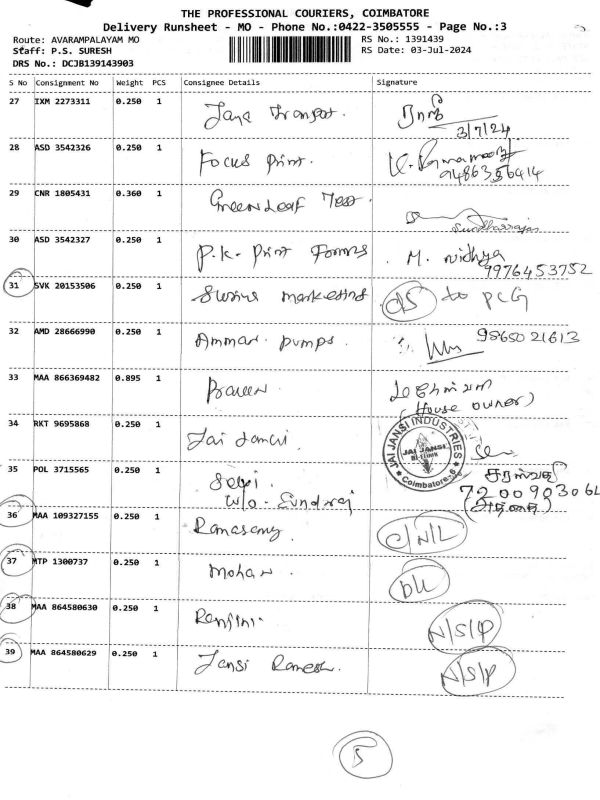 THE PROFESSIONAL COURIERS, COIMBATORE
Delivery Runsheet - MO - Phone No.:0422-3505555 - Page No.:3
Route: AVARAMPALAYAM MO
RS No.: 1391439
Staff: P.S. SURESH
RS Date: 03-Jul-2024
DRS No.: DCJB139143903
S No Consignment No Weight PCS Consignee Details Signature
27 IXM 2273311 0.250 1 Jaya Transport.
3/7/24
28 ASD 3542326 0.250 1 Focus Print.
29 CNR 1805431 0.360 1 Greenleaf Test
30 ASD 3542327 0.250 1 P.K. Print Forms M. Nidhya
9976453752
31 SVK 20153506 0.250 1 marketing D/S to PCG
32 AMD 28666990 0.250 1 Ammar. Pumps. 9865021613
33 MAA 866369482 0.895 1 Praveen.
(House owner)
34 RKT 9695868 0.250 1 Jai Jansi
JAI JANSI INDUSTRIES
JAI JANSI
Coimbatore-6
35 POL 3715565 0.250 1 Selvi. சரஸ்வதி
W/o - Sundraj
36 MAA 109327155 0.250 1 Ramasamy. C/N/L
37 MTP 1300737 0.250 1 Mohan. DL
38 MAA 864580630 0.250 1 Renjini. N/S/P
39 MAA 864580629 0.250 1 Jansi Ramesh. N/S/P
5